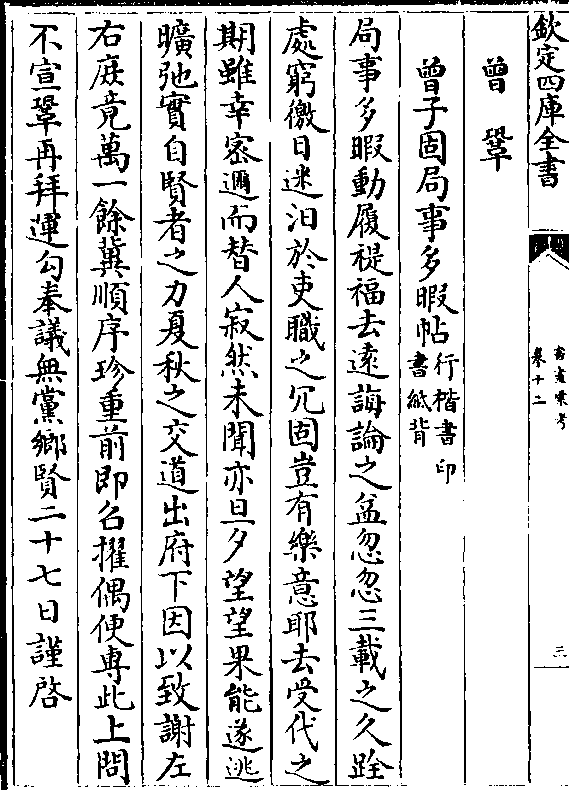 欽定四庫全書
書畫彙考
卷十二
三
曾鞏
曾子固局事多暇帖行楷書印書紙背
局事多暇動履禔福去遠誨論之益忽忽三載之久跧
處窮徼日迷汩於吏職之冗固豈有樂意耶去受代之
期雖幸密邇而替人寂然未聞亦旦夕望望果能遂逃
曠弛實自賢者之力夏秋之交道出府下因以致謝左
右庻竟萬一餘冀順序珍重前即召擢偶便專此上問
不宣鞏再拜運勾奉議無黨鄉賢二十七日謹啓